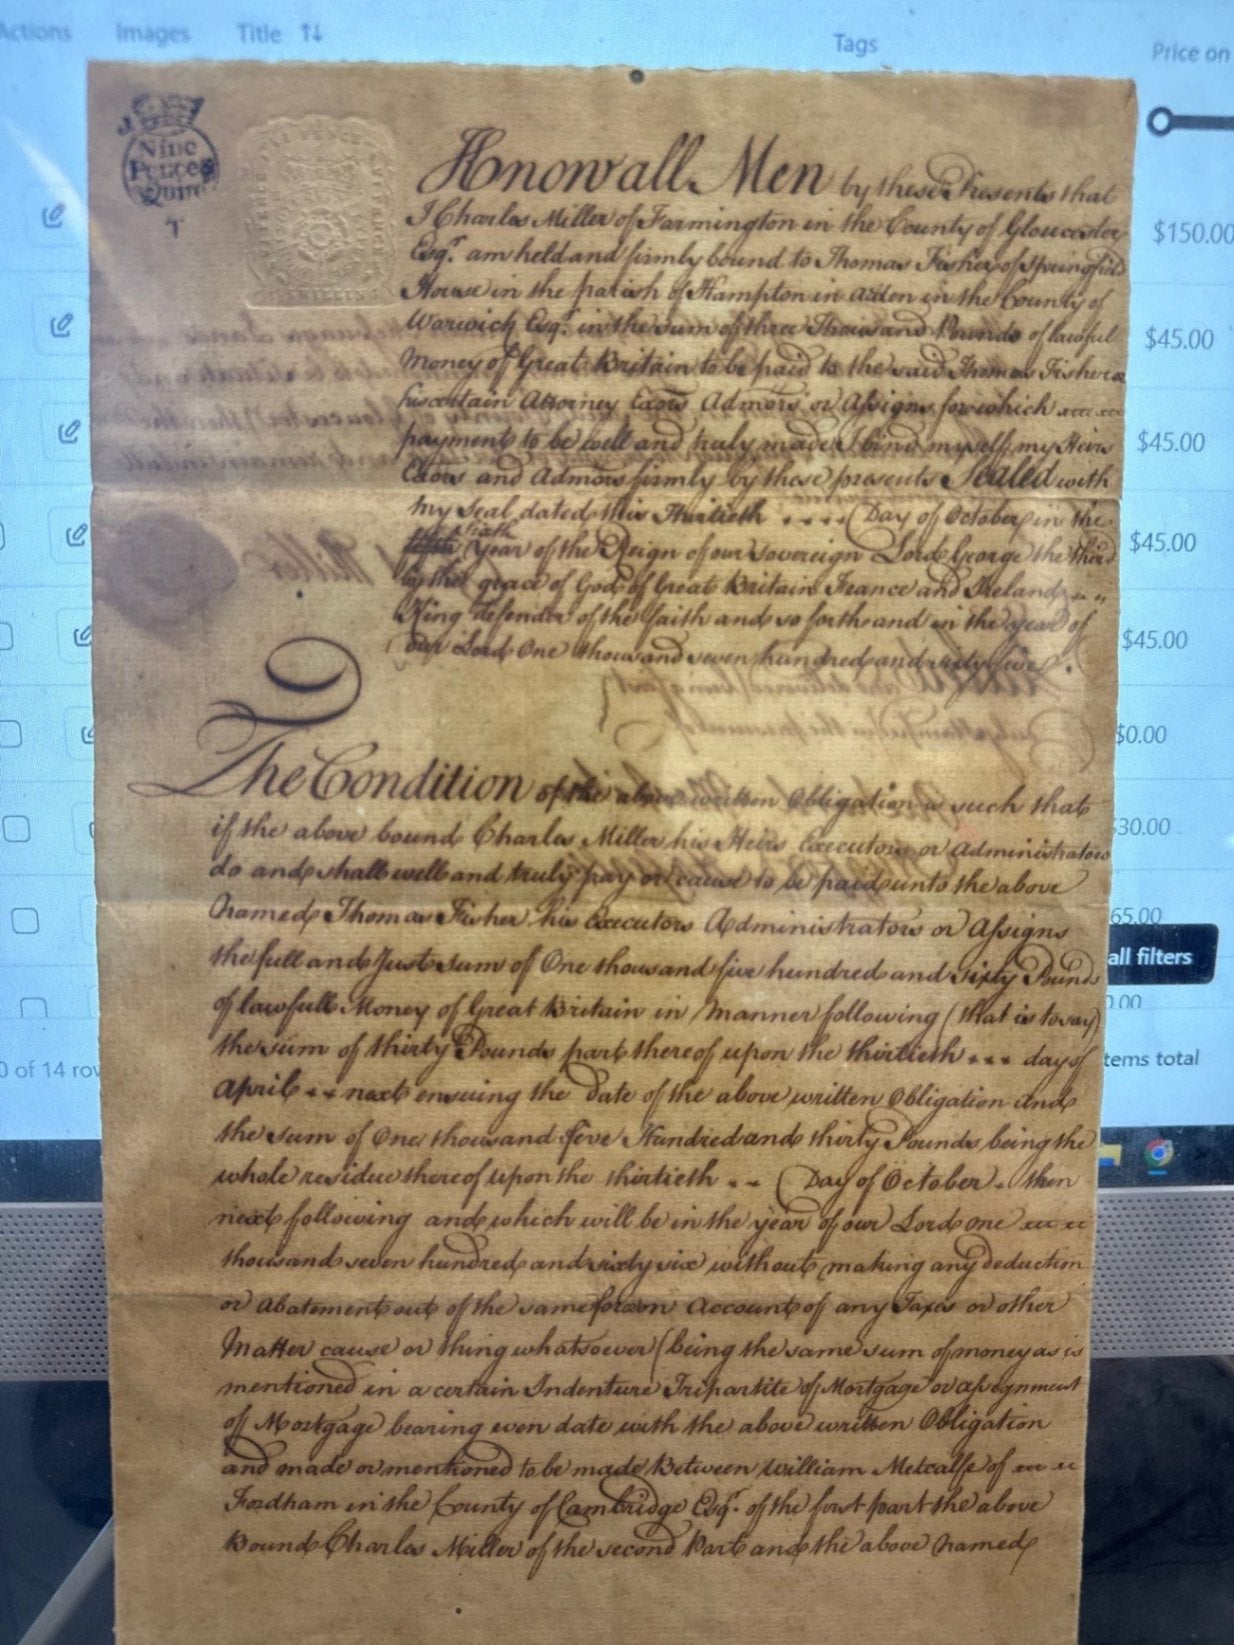 Actions Images Title ↑↓ Tags Price on
Nine
Pence p
Quire
T
VI PENCE
SHILLING
Know all Men by these Presents that
I Charles Miller of Farmington in the County of Gloucester
Esqr. am held and firmly bound to Thomas Fisher of Springfield
House in the parish of Hampton in Arden in the County of
Warwick Esqr. in the sum of three Thousand Pounds of lawful
Money of Great Britain to be paid to the said Thomas Fisher or
his certain Attorney Exors Admors or Assigns for which
payment to be well and truly made I bind myself my Heirs
Exors and Admors firmly by these presents Sealed with
my Seal dated this Thirtieth Day of October in the
sixth
fifth Year of the Reign of our Sovereign Lord George the third
by the grace of God of Great Britain France and Ireland
King defender of the faith and so forth and in the year of
our Lord One thousand seven hundred and sixty five.
The Condition of the above written Obligation is such that
if the above bound Charles Miller his Heirs Executors or Administrators
do and shall well and truly pay or cause to be paid unto the above
Named Thomas Fisher his Executors Administrators or Assigns
the full and Just sum of One thousand five hundred and sixty Pounds
of lawfull Money of Great Britain in Manner following (that is to say)
the sum of thirty Pounds part thereof upon the thirtieth day of
April next ensuing the Date of the above written Obligation and
the sum of One thousand five Hundred and thirty Pounds being the
whole residue thereof upon the thirtieth Day of October then
next following and which will be in the year of our Lord one
thousand seven hundred and sixty six without making any deduction
or Abatement out of the same for on Account of any Taxes or other
Matter cause or thing whatsoever (being the same sum of money as is
mentioned in a certain Indenture Tripartite of Mortgage or assignment
of Mortgage bearing even date with the above written Obligation
and made or mentioned to be made Between William Metcalfe of
Fordham in the County of Cambridge Esqr. of the first part the above
Bound Charles Miller of the second Part and the above Named
$150.00
$45.00
$45.00
$45.00
$45.00
$0.00
$30.00
65.00
all filters
0.00
tems total
0 of 14 row